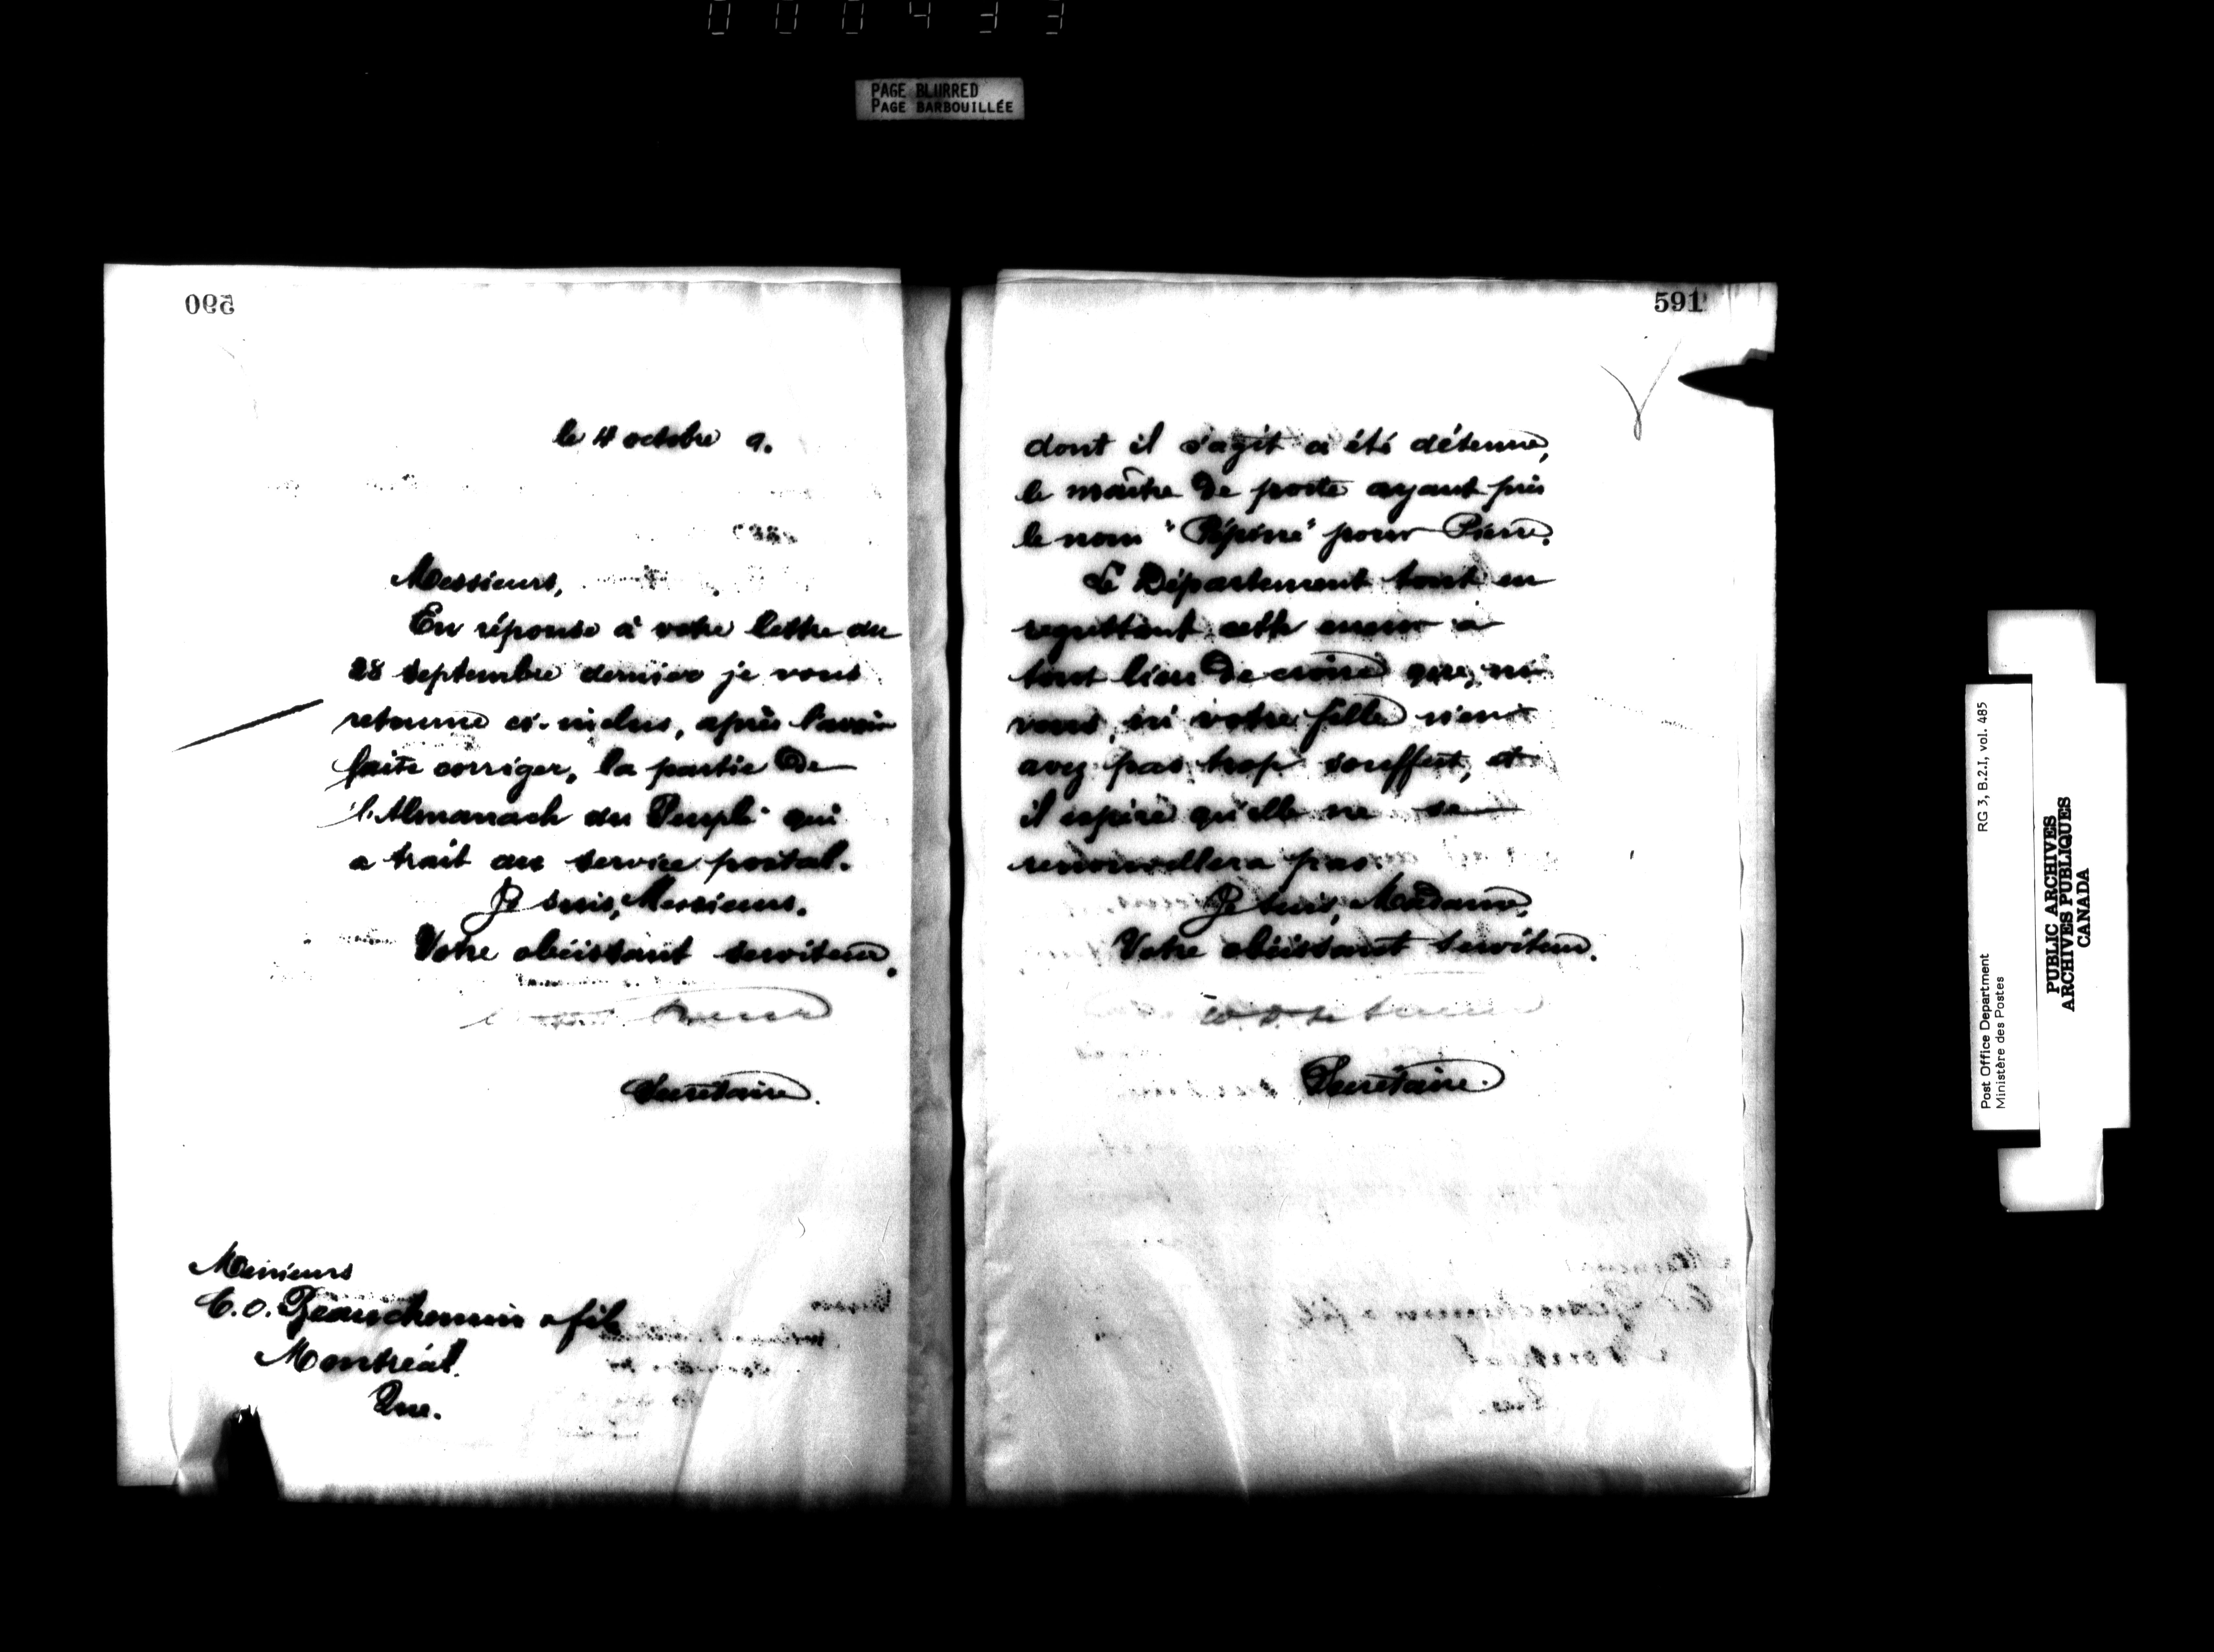 000433
PAGE BLURRED
PAGE BARBOUILLÉE
590
le 4 octobre 9.
Messieurs,
En réponse à votre lettre du
28 septembre dernier je vous
retourne ci-inclus, après l'avoir
faite corriger, la partie de
l'Almanach du Peuple qui
a trait au service postal.
Je suis, Messieurs.
Votre obéissant serviteur.
Secrétaire.
Messieurs
C. O. Beauchemin & fils
Montréal.
Que.
591
dont il s'agit a été détenue,
le maître de poste ayant pris
le nom "Pépone" pour Pierre.
Le Département tout en
regrettant cette erreur a
tout lieu de croire que, ni
vous, ni votre fille n'en
avez pas trop souffert, et
il espère qu'elle ne se
renouvellera pas.
Je suis, Madame,
Votre obéissant serviteur.
Secrétaire.
Post Office Department
Ministère des Postes
RG 3, B.2.1, vol. 485
PUBLIC ARCHIVES
ARCHIVES PUBLIQUES
CANADA